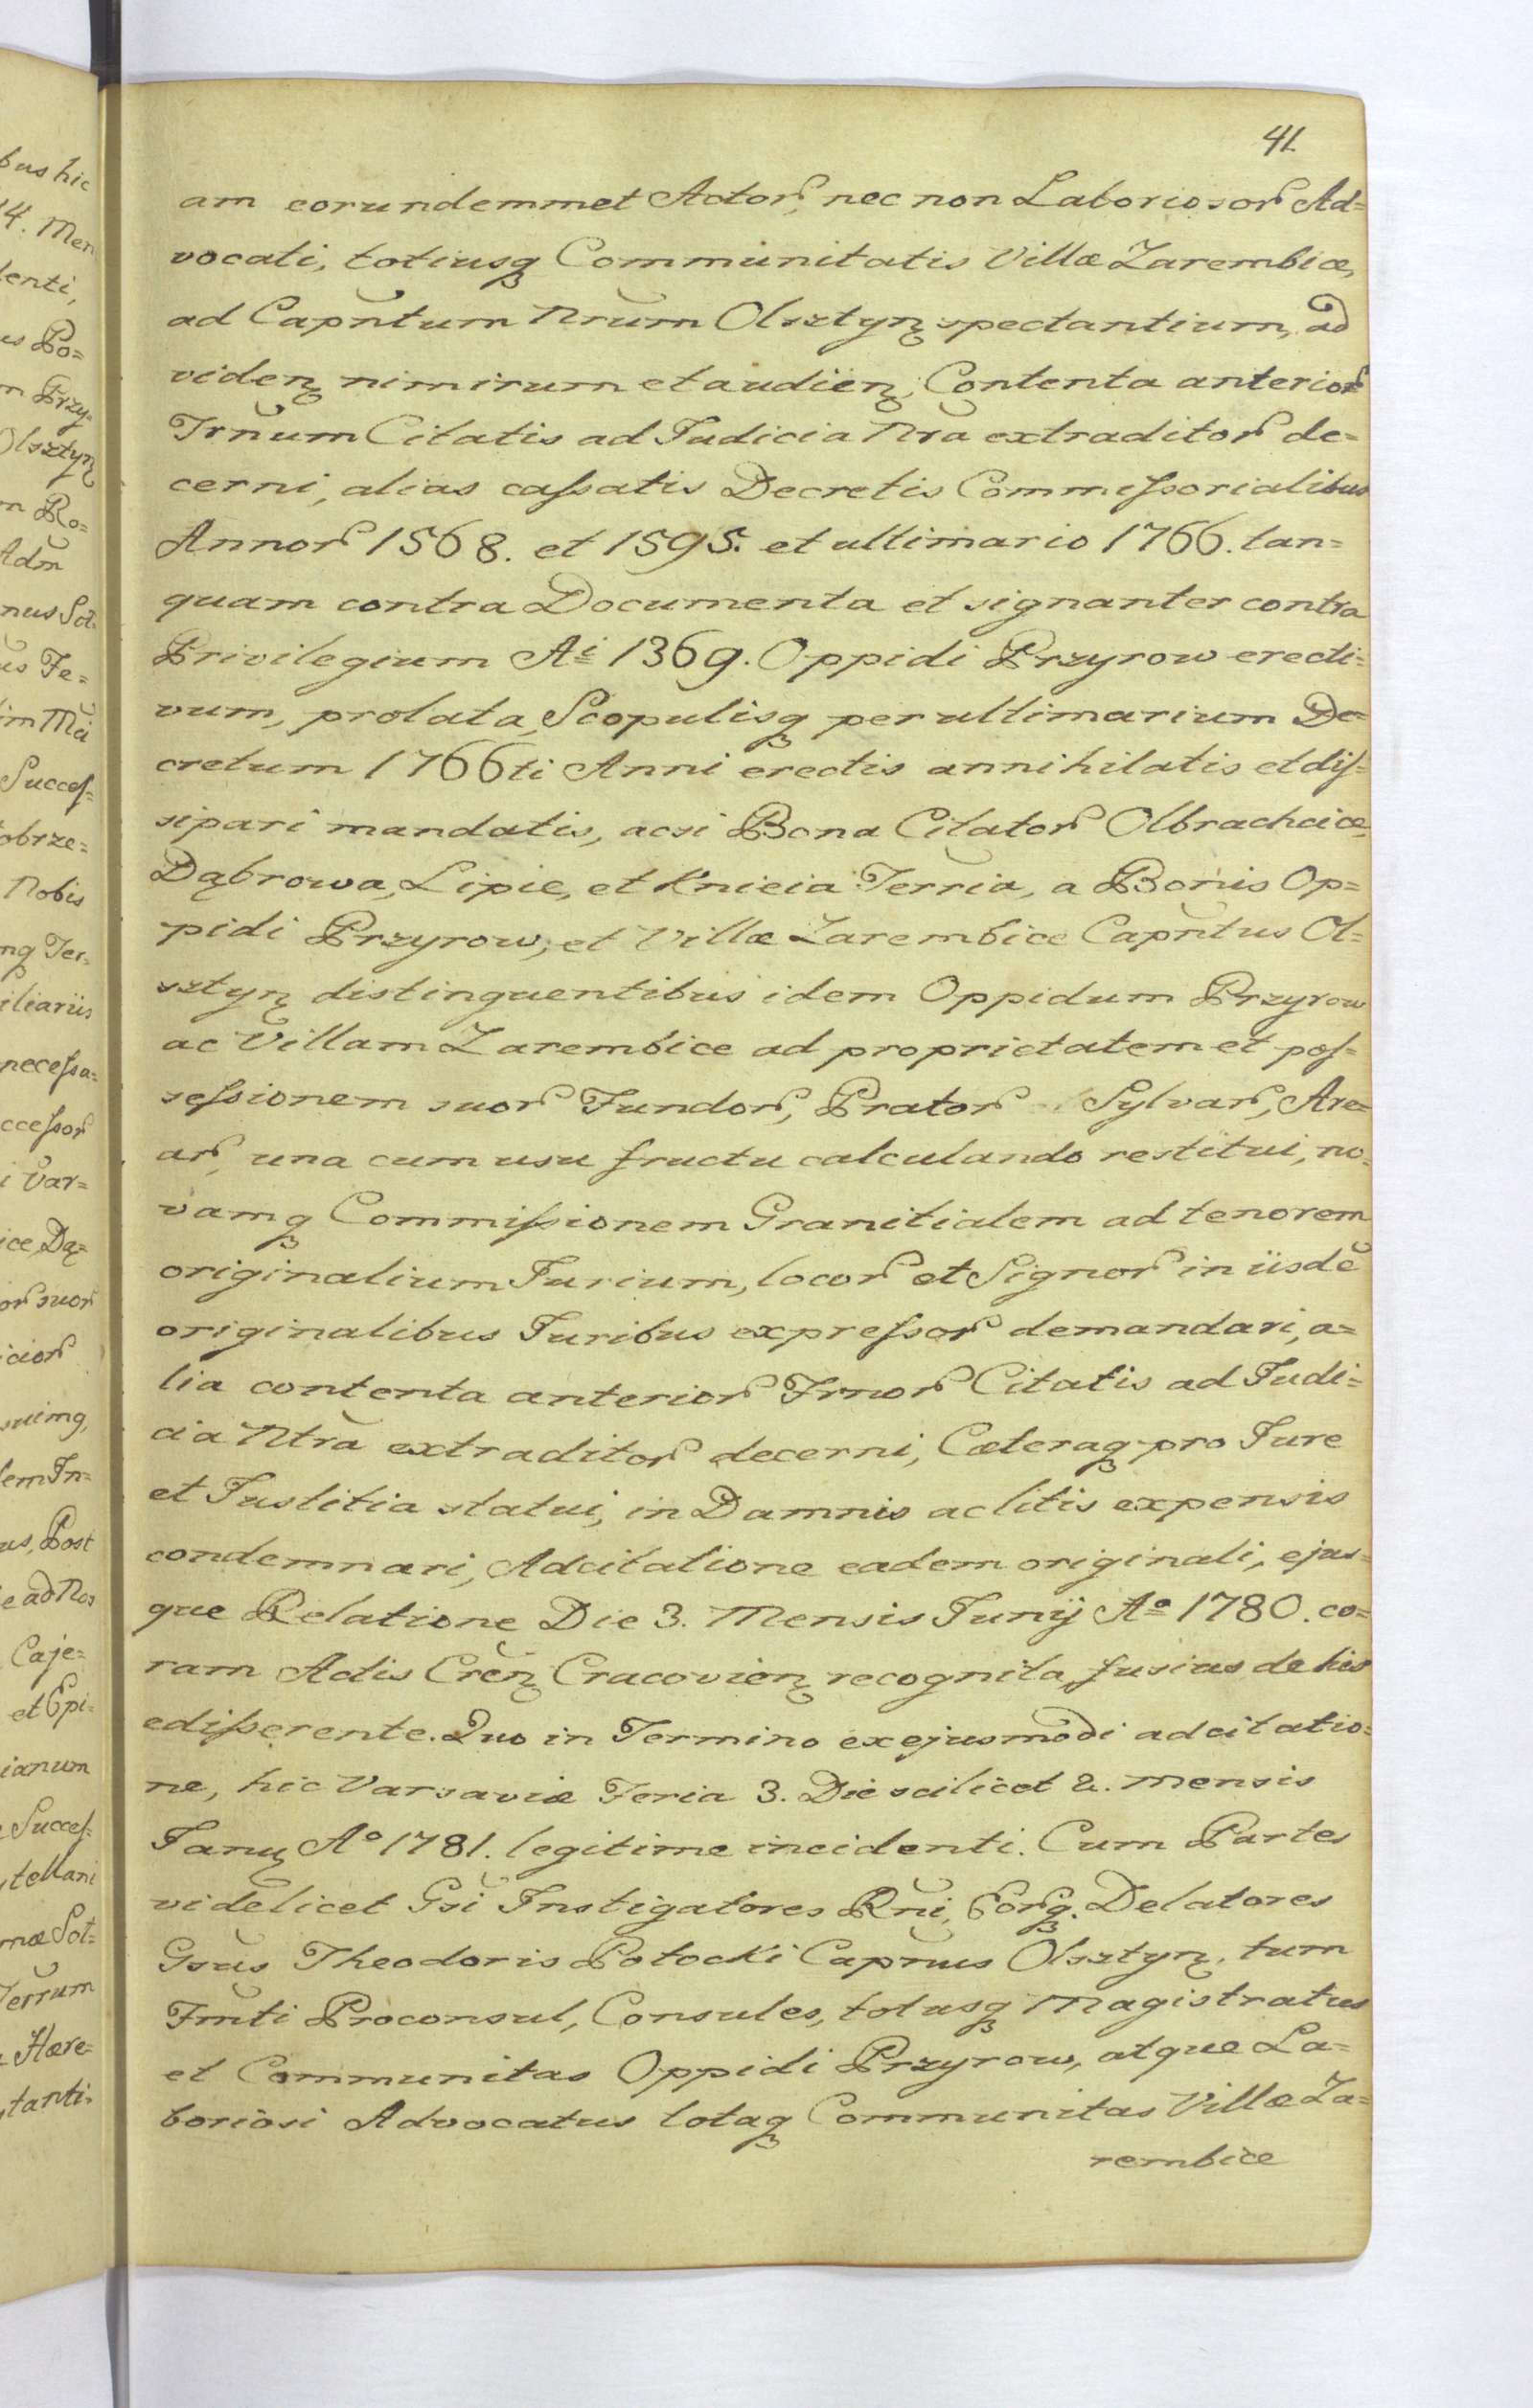 41
am eorundemmet Actor, nec non Laboriosor Ad=
vocati, totiusq Communitatis Villæ Zarembice,
ad Capntum Nrum Olsztyn spectantium, ad
viden nimirum et audien, Contenta anterior
Trnum Citatis ad Judicia Nra extraditor de=
cerni, alias caſsatis Decretis Commiſsorialibus
Annor 1568. et 1595. et ultimario 1766. tan=
quam contra Documenta et signanter contra
Privilegium Ai 1369. Oppidi Przyrow erecti=
vum, prolata, Scopulisq per ultimarium De=
cretum 1766ti Anni erectis annihilatis et diſ=
sipari mandatis, acsi Bona Citator Olbrachcice,
Dąbrowa, Lipie, et Knieia Terria, a Bonis Op=
pidi Przyrow, et Villæ Zarembice Capntus Ol=
sztyn distinguentibus idem Oppidum Przyrow
ac Villam Zarembice ad proprietatem et poſ=
seſsionem suor Fundor, Prator Sylvar, Are=
ar, una cum usu fructu calculando restitui, no=
vamq Commiſsionem Granitialem ad tenorem
originalium Jurium, locor et Signor in iisdē
originalibus Juribus expreſsor demandari, a=
lia contenta anterior Trnor Citatis ad Judi=
cia Ntra extraditor decerni, Cæteraq pro Jure
et Justitia statui, in Damnis ac litis expensis
condemnari, Adcitatione eadem originali, ejus=
que Relatione Die 3. Mensis Junij Ao 1780. co=
ram Actis Cren Cracovien recognita, fusius de his
ediſserente. Quo in Termino ex ejusmodi adcitatio=
ne, hic Varsaviæ Feria 3. Die scilicet 2. Mensis
Janu Ao 1781. legitime incidenti. Cum Partes
videlicet Gsi Instigatores Rni, Eorq. Delatores
Gsus Theodoris Potocki Capnus Olsztyn. tum
Fmti Proconsul, Consules, totusq Magistratus
et Communitas Oppidi Przyrow, atque La=
boriosi Advocatus totaq Communitas Villæ Za=
rembice
bus hic
14. Men
denti,
Po=
m Przy=
Olsztyn
m Ro=
Adm
nus Sot=
us Fe=
im Ma
Succeſ=
obrze=
Nobis
mq Ter=
iliariis
neceſsa=
cceſsor
i Var=
ice, Dą=
or suor
icior
suimq,
lem In=
us, Post
e ad Nos
Caje=
et Epi=
ianum
Succeſ=
stellani
mæ Sot=
Terrum
Hære=
tanti=